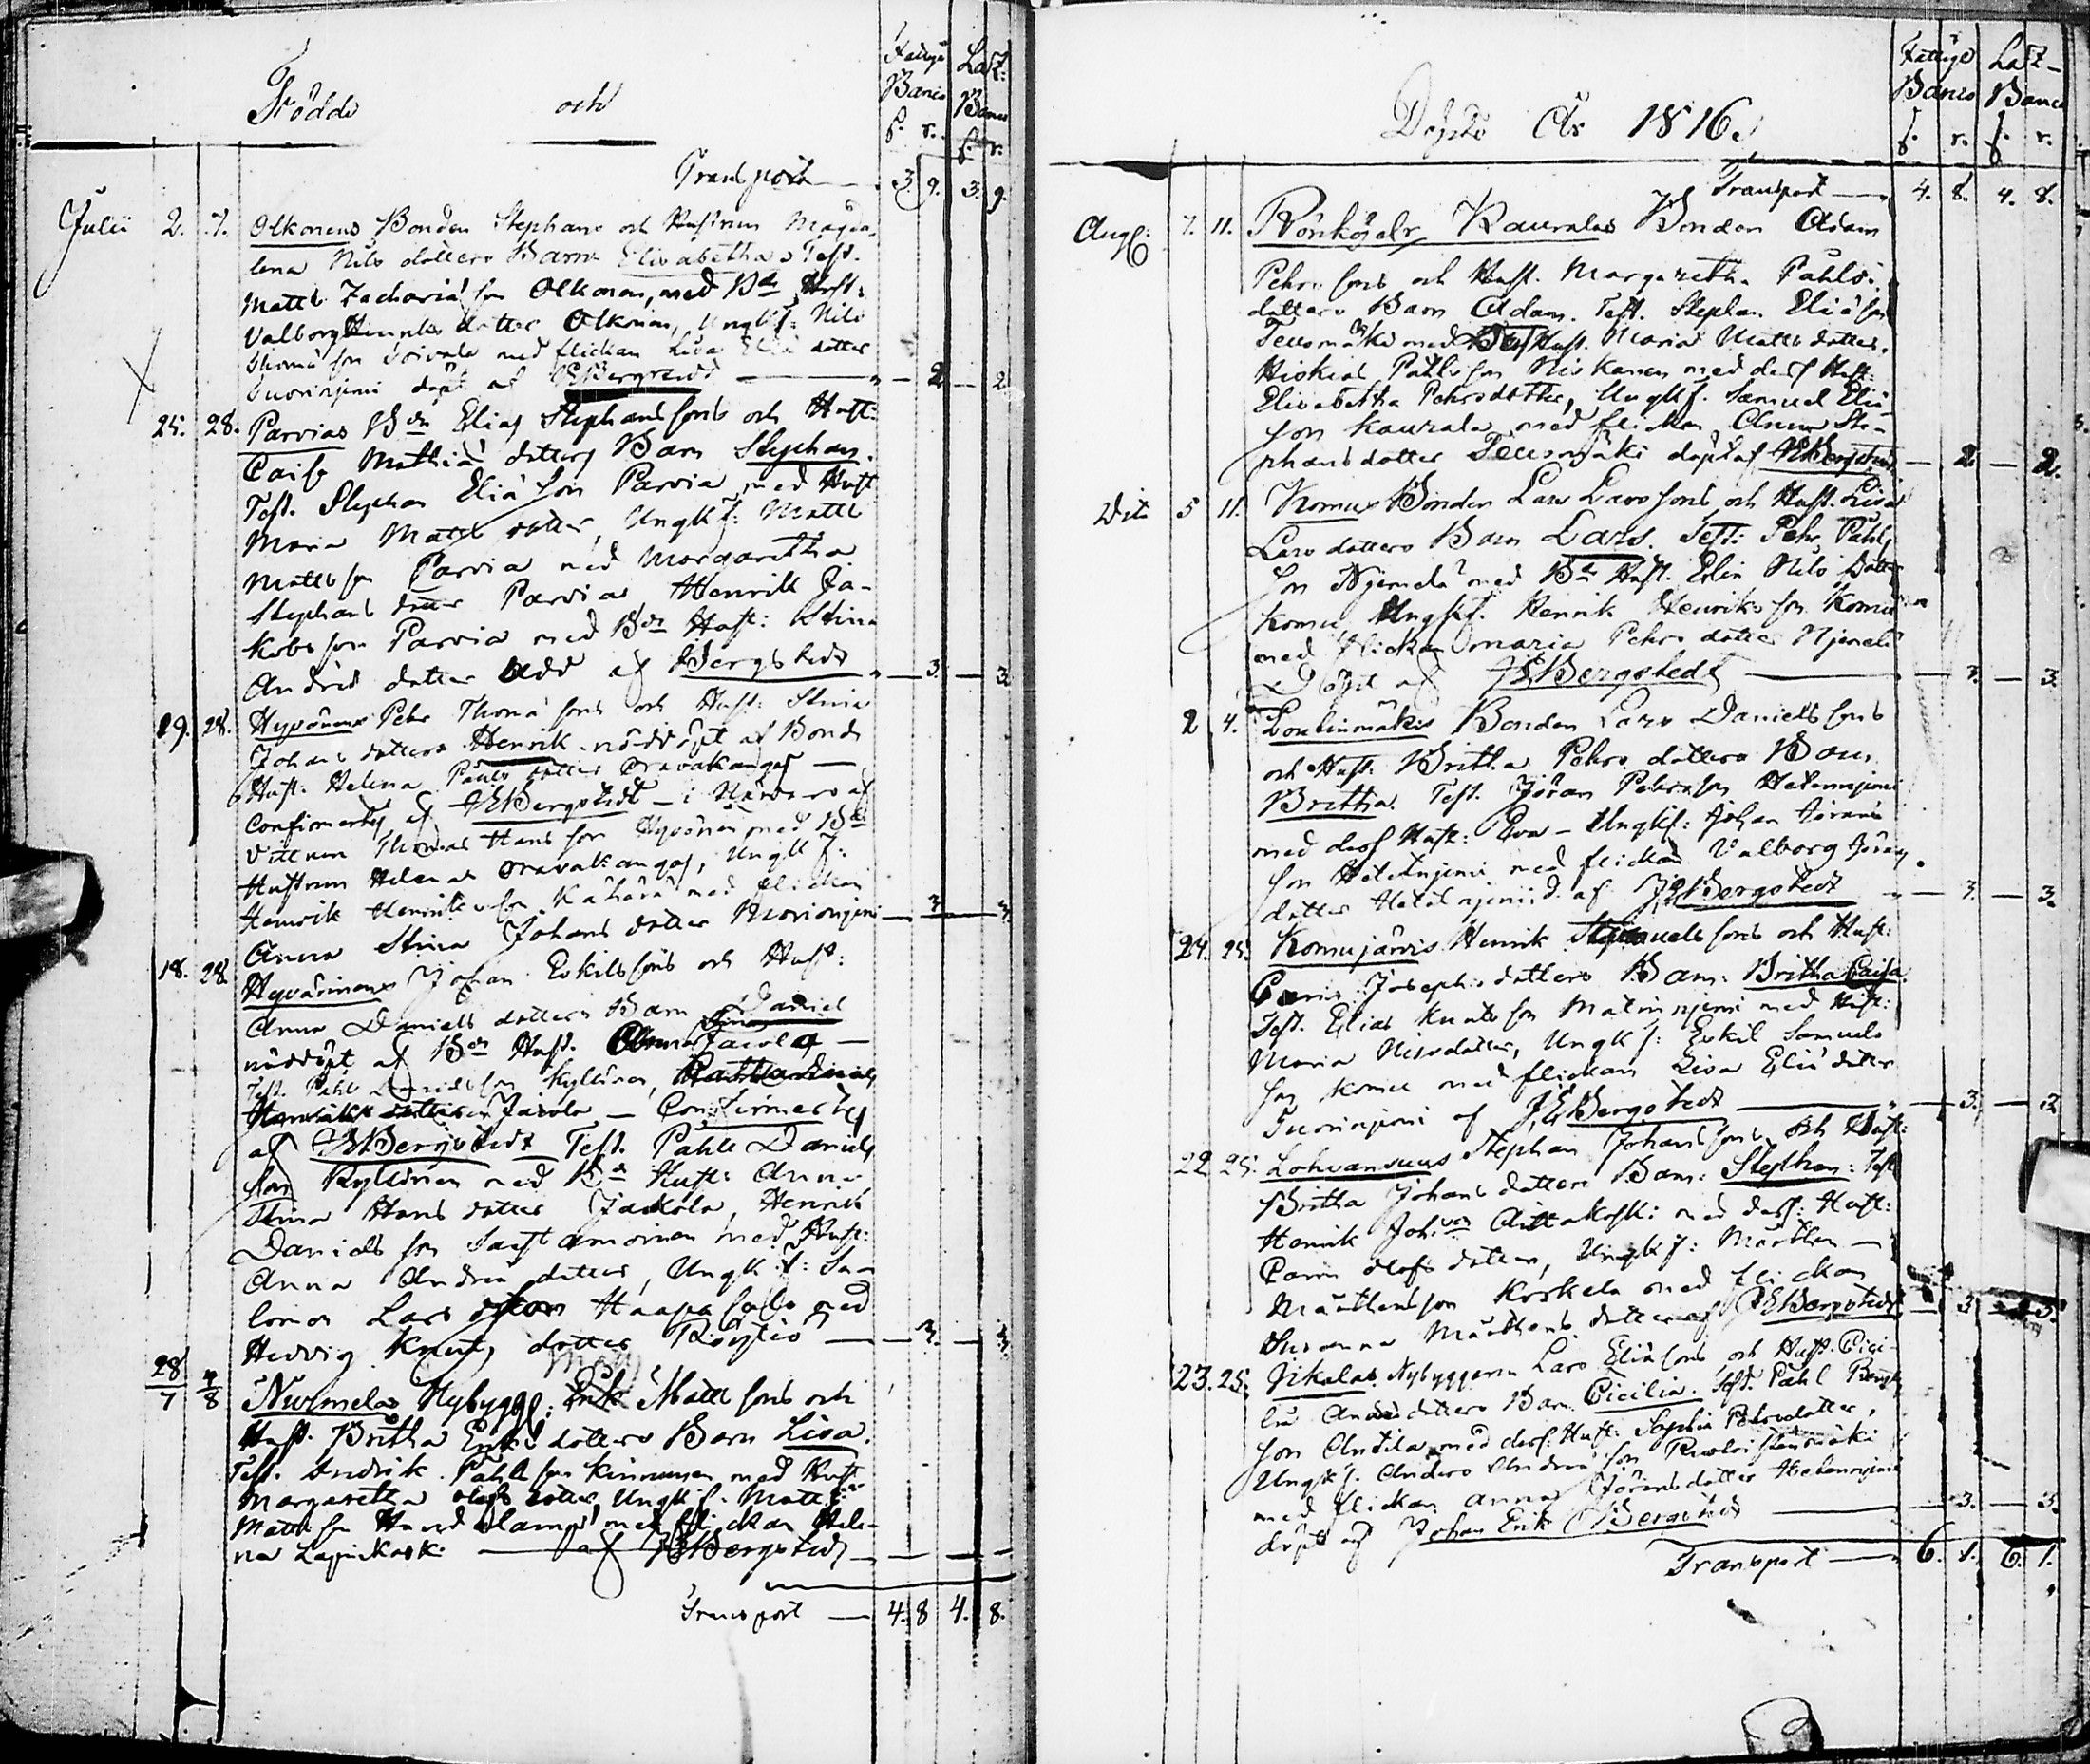 Födde och
Fattige Banco
Laz: Banco
f. r. f. r.
Transport — 3. 9. 3. 9.
Julii 2. 7. Olkonens Bonden Stephans och Hustrun Magda-
lena Nils dotters Barn Elisabetha Test.
Matts Zachariæ son Olkonen, med Bdn Hust:
Valborg dotter Olkonen, Ungk: Nils
Thomæ son med flickan Lisa Eliæ dotter
Suoninjemi döpt af Bergstedt — 2 — 2
25. 28. Parvias Bdn Elias Stephans sons och Hust:
Caisa Mathiæ dotters Barn Stephan.
Test. Stephan Eliæ son Parvia med Hust
Maria Matts dotter, Ungk: Matts
Matts son Parvia med Margaretha
Stephans dotter Parvia, Henrik Ja-
kobs son Parvia med Bdn Hust: Stina
Andreæ dotter af JEBergstedt — 3. — 3.
19. 28. Hyvönens Pehr Thomæ sons och Hust: Stina
Johans dotters Henrik nöddöpt af Bonde
Hust: Helena Påhls dotter Oravakangas —
Confirmerdes af JEBergstedt — i Närvaro af
Vittnen Thomas Hans son Hyvönen med Bdn
Hustrun Helena Oravakangas, Ungk:
Henrik Henriks son Kähärä med flickan
Anna Stina Johans dotter — 3. — 3.
18. 28. Hyvärinens Johan Eskils sons och Hust:
Anna Daniels dotters Barn Daniel
nöddöpt af Bdn Hust. Anna Stina Jacola —
Test. Påhl Daniels son Kyllönen,
Jacola — Confirmerdes
af JEBergstedt Test. Påhl Daniels
son Kyllönen med Bdn Hust: Anna
Stina Hans dotter Jackola, Henrik
Daniels son Sarftamoinen med Hust:
Anna Andreæ dotter, Ungk: Sa-
lomon Lars son Haapasalo med
Hedvig Knuts dotter — 3. — 3.
28/7 4/8 Nurmelas Nybygg: Matts Matts sons och
Hust. Britha Eriks dotters Barn Lisa.
Test. Påhls son Kinnunen med Hust
Margaretha Olofs dotter, Ungk: Matts
Matts son med flickan Hele-
na Lapinkoski — af JEBergstedt — —
Transport — 4. 8 4. 8.
Döpte År 1816.
Fattige Banco
Laz— Banco
f. r. f. r.
Transport — 4. 8. 4. 8.
Aug: 7. 11. Kauralas Bonden Adam
Pehrs sons och Hust. Margaretha Påhls
dotters Barn Adam. Test. Stephan Eliæ son
Teerimäki med Hust. Maria Matts dotter.
Hiskias Påhls son Niskanen med dess Hust:
Elisabetha Pehrs dotter, Ungk. Samuel Eliæ
son Kaurala med flickan Anna Ste-
phans dotter Teerimäki döpt af JEBergstedt — 2 — 2.
Dito 5 11. Komus Bonden Lars Lars sons och Hust. Lisa
Lars dotters Barn Lars. Test: Pehr Påhls
son Njemelä med Bdn Hust. Elin Nils dotter
Komu Ungk. Henrik Henriks son Komu
med flickan Maria Pehrs dotter Njemelä
Döpt af JEBergstedt — 3. — 3.
2 4. Loutinmäkis Bonden Lars Daniels sons
och Hust: Britha Pehrs dotters Barn
Britha. Test. Jöran Pehrs son Hetenjemi
med dess Hust: Eva — Ungk: Johan Jörans
son Hetenjemi med flickan Valborg Jörans
dotter Hetenjemi d. af JEBergstedt — 3. — 3.
24. 25. Komujärvis Henrik Samuels sons och Hust:
Carin Josephs dotters Barn: Britha Caisa.
Test. Elias Knuts son Matinnjemi med Hust:
Maria Nils dotter, Ungk: Eskil Samuels
son Komu med flickan Lisa Eliæ dotter
Suoninjemi af JEBergstedt — 3. — 3
22 25. Lohvansuus Stephan Johans sons och Hust:
Britha Johans dotters Barn: Stephan: Test
Henrik Johans Aittakoski med dess: Hust:
Carin Olofs dotter, Ungk: Mårthen —
Mårthens son Koskela med flickan
Susanna Mårthens dotter af JEBergstedt — 3. — 3.
23. 25. Jikalas Nybyggaren Lars Eliæ sons och Hust. Cici-
lia Andreæ dotters Barn Cicilia. Test. Påhl Bengts
son Antila med dess: Hust: Sophia Pehrs dotter,
Ungk: Anders Andreæ son
med flickan Anna Jörans dotter Hetenjemi
döpt af Johan Erik Bergstedt — 3. — 3.
Transport — 6. 1. 6. 1.